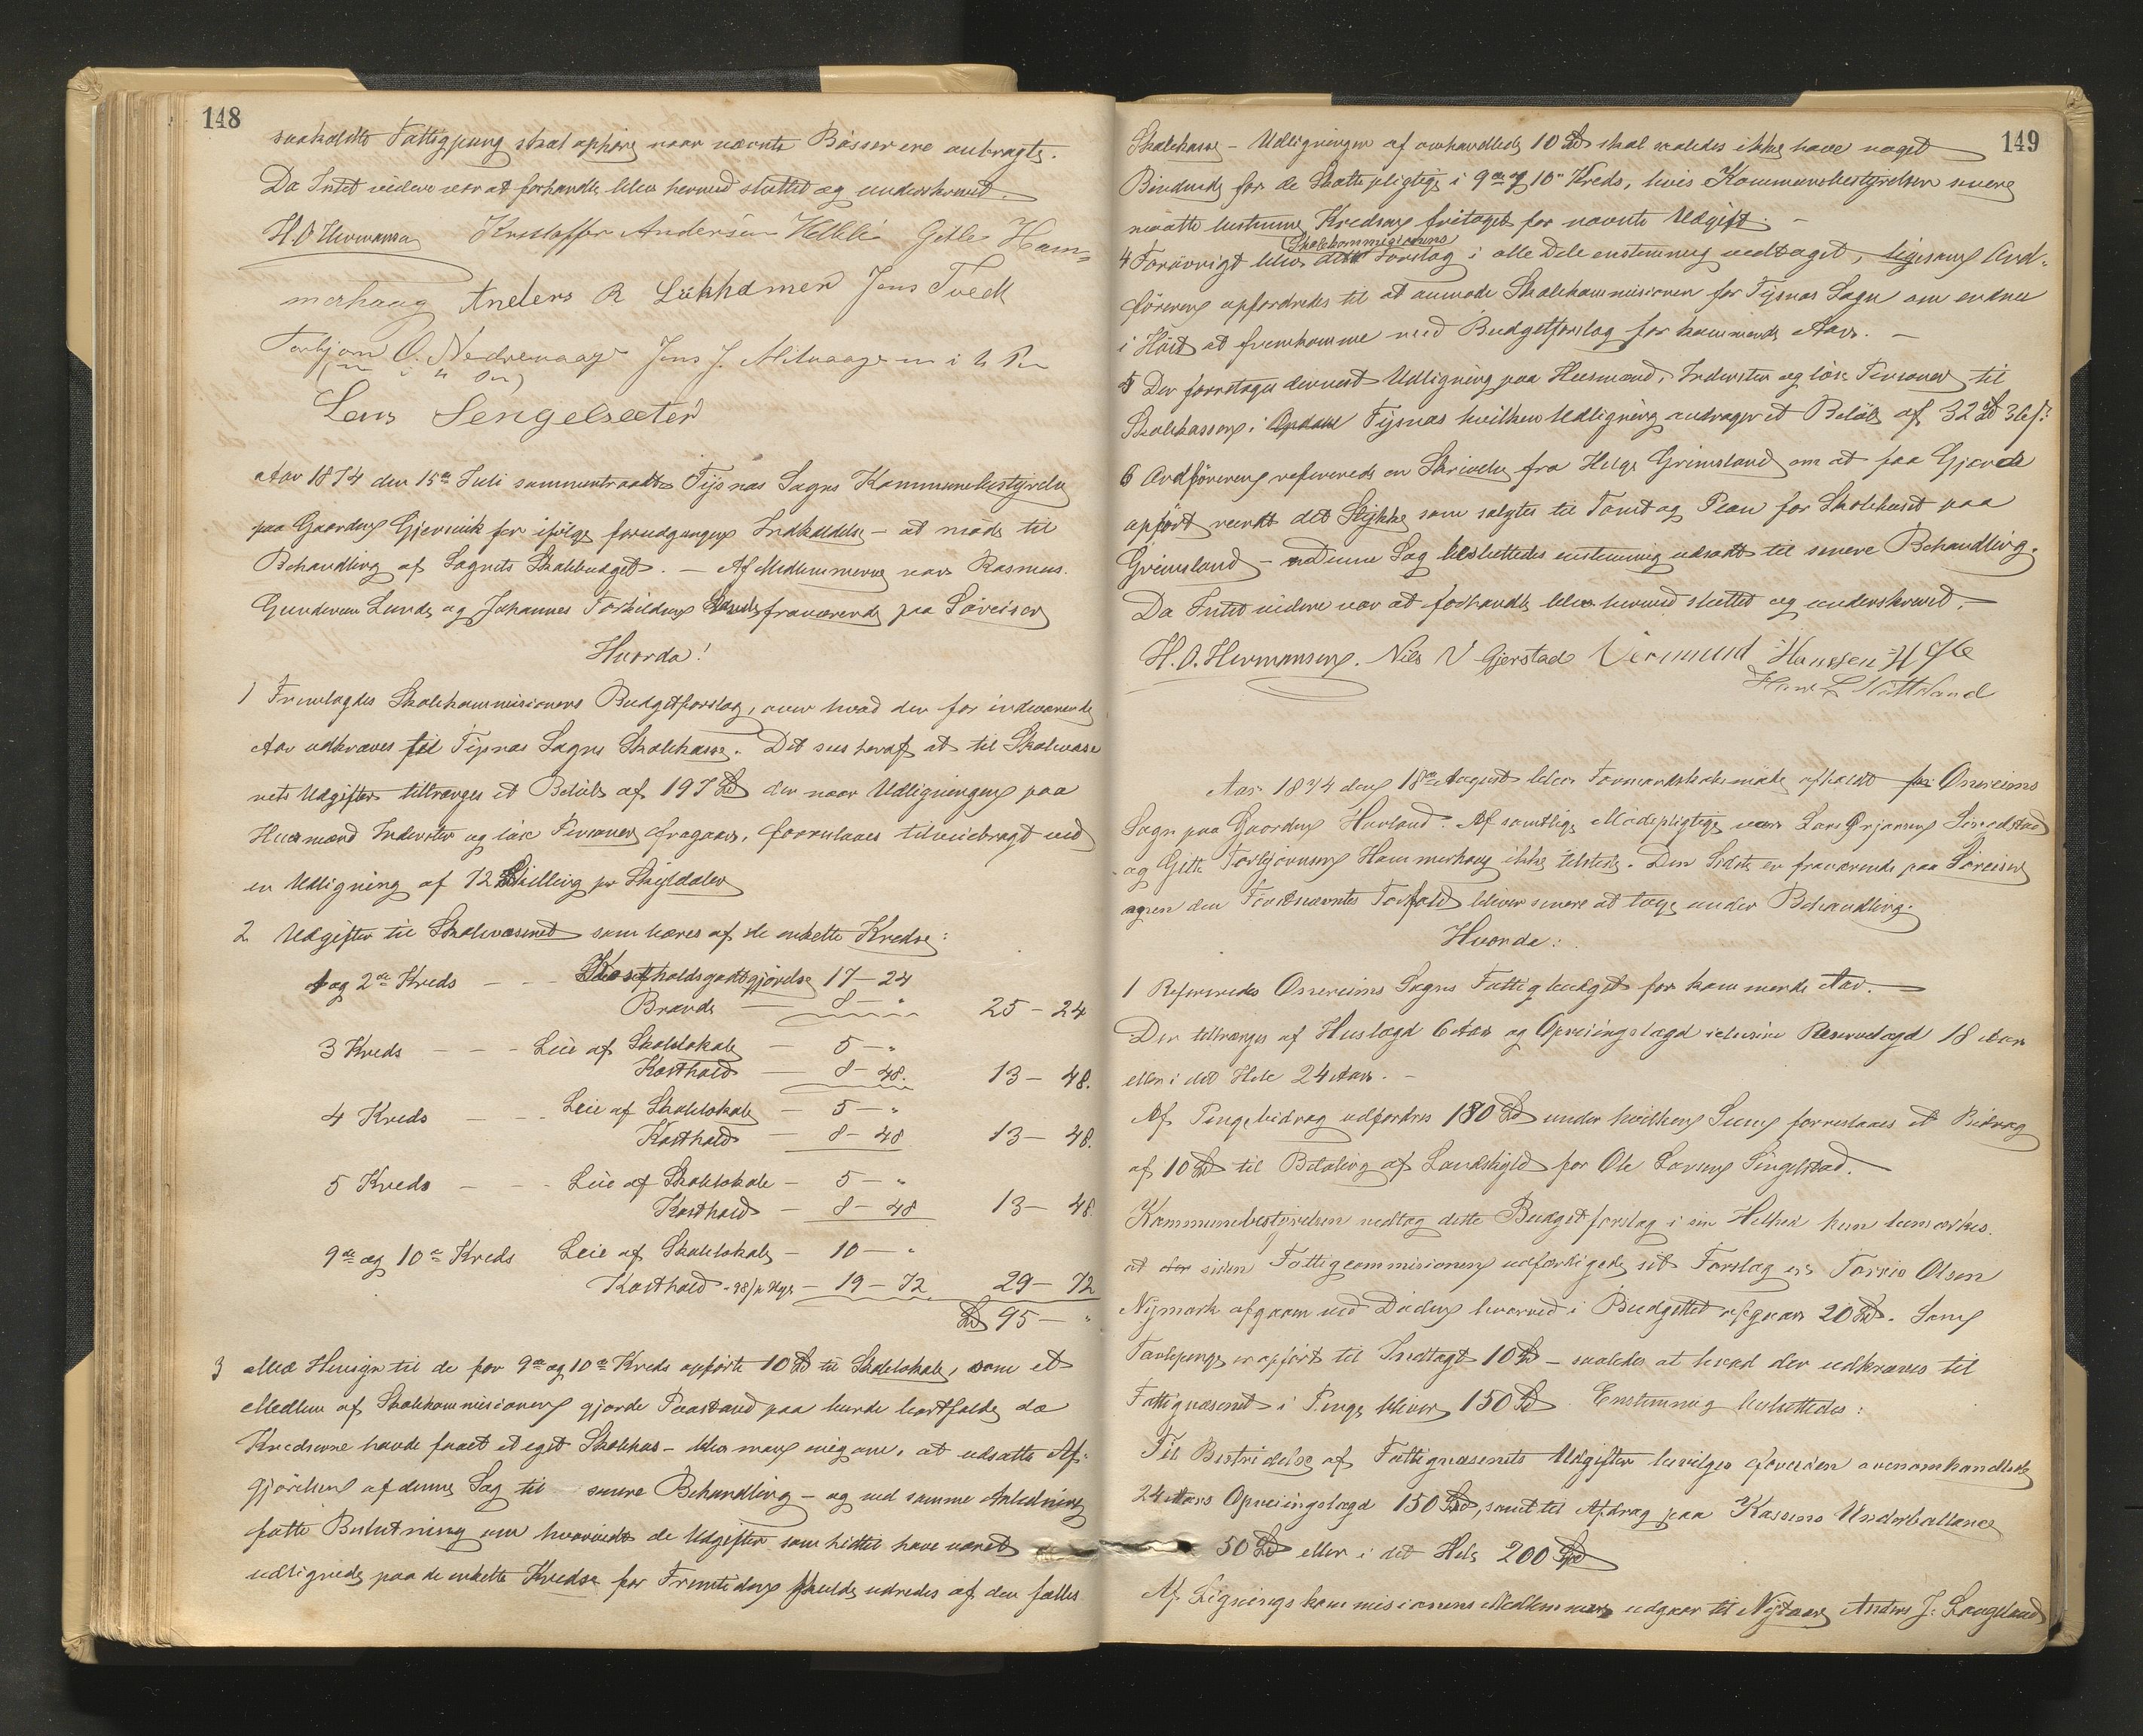 148
saakaldte Fattigpung skal ophøre naar nævnte Bøsser ere anbragte.
Da Intet videre var at forhandle blev hermed sluttet og underskrevet.
H. O. Hermansen Kristoffer Andersen Hellelid Gitle Ham=
merhaug Anders R Lukhamer Jens Tvedt
Torbjørn O. Nedrevaage Jens J. Milvaage m i h P
Lars Sengelsæter
Aar 1874 den 15de Juli sammentraadte Tysnæs Sogns Kommunebestyrelse
paa Gaarden Gjersvik for ifølge forudgangen Indkaldelse – at møde til
Behandling af Sognets Skolebudget. – Af Medlemmerne var Rasmus
Gundersen Lunde og Johannes Torkildsen fraværende paa Søreiser
Hvorda!
1 Fremlagdes Skolekommisionens Budgetforslag, over hvad der for indeværende
Aar udkræves til Tysnæs Sogns Skolekasse. Det sees heraf at til Skolevæse
nets Udgifter tiltrænges et Beløb af 197 Spd der naar Udligningen paa
Huusmænd Inderster og løse Personer fragaar, formenes tilveiebragt ved
en Udligning af 72 Skilling pr Skylddaler
2 Udgifter til Skolevæsenet som bæres af de enkelte Kredse:
1 og 2den Kreds – – Kostholdsgodtgjørelse 17 – 24
Brænde 8 – " 25 – 24
3 Kreds – – – Leie af Skolelokale – 5 – "
Kosthold – 8 – 48. 13 – 48.
4 Kreds – – Leie af Skolelokale – 5 – "
Kosthold – 8 – 48 13 – 48.
5 Kreds – – Leie af Skolelokale – 5 – "
Kosthold – 8 – 48 13 – 48.
9de og 10de Kreds Leie af Skolelokale – 10 – "
Kosthold – 19 – 72 29 – 72
Spd 95 – "
3 Med Hensyn til de for 9de og 10de Kreds opførte 10 Spd til Skolelokale, som et
Medlem af Skolekommisionen gjorde Paastand paa burde bortfalde da
Kredserne havde faaet et eget Skolehus – blev man enig om, at udsætte Af-
gjørelsen af denne Sag til senere Behandling – og ved samme Anledning
fatte Beslutning om hvorvidt de Udgifter som hidtil have været
udlignede paa de enkelte Kredse for Fremtiden skulde udredes af den fælles
149
Skolekasse – Udligningen af omhandlede 10 Spd skal saaledes ikke have noget
Bindende for de Skattepligtige i 9de og 10de Kreds, hvis Kommunebestyrelsen senere
maatte bestemme Kredsene fritaget for nævnte Udgift. –
Skolekommisionens
4 Forøvrigt blev dette Forslag i alle Dele enstemmig vedtaget, ligesom Ord-
føreren opfordredes til at anmode Skolekommisionen for Tysnæs Sogn om endnu
i Høst at fremkomme med Budgetforslag for kommende Aar. –
5 Der foretoges dernæst Udligning paa Huusmænd, Inderster og løse Personer til
Skolekassen i Tysnæs hvilken Udligning andrager et Beløb af 32 Spd 36 s.
6 Ordføreren refererede en Skrivelse fra Helge Grimsland om at faa Gjærde
opført rundt det Stykke som solgtes til Tomt og Plan for Skolehuset paa
Grimsland – Denne Sag besluttedes enstemmig udsatt til senere Behandling.
Da Intet videre var at forhandle blev hermed sluttet og underskrevet. –
H. O. Hermansen. Nils N Gjerstad Vermund Hanssen Hope
Hans L Kattland
Aar 1874 den 18de August blev Formandskabsmøde afholdt for Onereims
Sogn paa Gaarden Hovland. Af samtlige Mødepligtige var Lars Ørjansen
og Gitle Torbjørnsen Hammerhaug ikke tilstede. Den Sidste er fraværende paa Søreiser
ogsen den Førstnævntes Forfald bliver senere at tage under Behandling.
Hvorda:
1 Refereredes Onereims Sogns Fattigbudget for kommende Aar. –
Der tiltrænges af Huslægd 6 Aar og Opreiingslægd inclusive Reservelægd 18 Aar
eller i det Hele 24 Aar. –
Af Pengebidrag udfordres 180 Spd under hvilken Sum foreslaaes et Bidrag
af 10 Spd til Betaling af Landskyld for Ole Larsen Singelstad. –
Kommunebestyrelsen vedtog dette Budgetforslag i sin Helhed kun bemærkes.
at siden Fattigcommisionen udfærdigede sit Forslag er Olsen
Nymark afgaaen ved Døden hvorved i Budgettet afgaar 20 Spd. Som
Tavlepenge er opført til Indtægt 10 Spd – saaledes at hvad der udkræves til
Fattigvæsenet i Penge bliver 150 Spd. Enstemmig besluttedes:
Til Bestridelse af Fattigvæsenets Udgifter bevilges foruden ovenomhandlede
24 Aars Opreiingslægd 150 Spd, samt til Afdrag paa Kassens Underballance
50 Spd eller i det Hele 200 Spd
Af Ligningskommisionens Medlemmer udgaar til Nytaar Anders J. Langeland